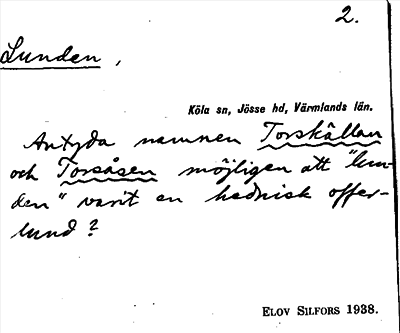 2.
Lunden,
Köla sn, Jösse hd, Värmlands län.
Antyda namnen Torskällan
och Torsåsen möjligen att "lun-
den" varit en hednisk offer-
lund?
ELOV SILFORS 1938.